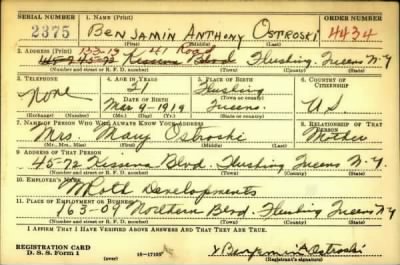 SERIAL NUMBER 1. NAME (Print) ORDER NUMBER
2375 BENJAMIN ANTHONY OSTROSKI 4434
(First) (Middle) (Last)
133-19 41 Road
2. ADDRESS (Print)
45-72 Kissena Blvd Flushing Queens N.Y.
(Number and street or R. F. D. number) (Town) (County) (State)
3. TELEPHONE 4. AGE IN YEARS 5. PLACE OF BIRTH 6. COUNTRY OF CITIZENSHIP
None 21 Flushing
DATE OF BIRTH (Town or county)
Mar 9-1919 Queens U.S.
(Exchange) (Number) (Mo.) (Day) (Yr.) (State or country)
7. NAME OF PERSON WHO WILL ALWAYS KNOW YOUR ADDRESS 8. RELATIONSHIP OF THAT PERSON
Mrs. Mary Ostroski Mother
(Mr., Mrs., Miss) (First) (Middle) (Last)
9. ADDRESS OF THAT PERSON
45-72 Kissena Blvd. Flushing Queens N.Y.
(Number and street or R. F. D. number) (Town) (County) (State)
10. EMPLOYER'S NAME
Roth Developments
11. PLACE OF EMPLOYMENT OR BUSINESS
163-09 Northern Blvd. Flushing Queens N.Y.
(Number and street or R. F. D. number) (Town) (County) (State)
I AFFIRM THAT I HAVE VERIFIED ABOVE ANSWERS AND THAT THEY ARE TRUE.
REGISTRATION CARD
D. S. S. Form 1 16-17105 x Benjamin Ostroski
(Registrant's signature)